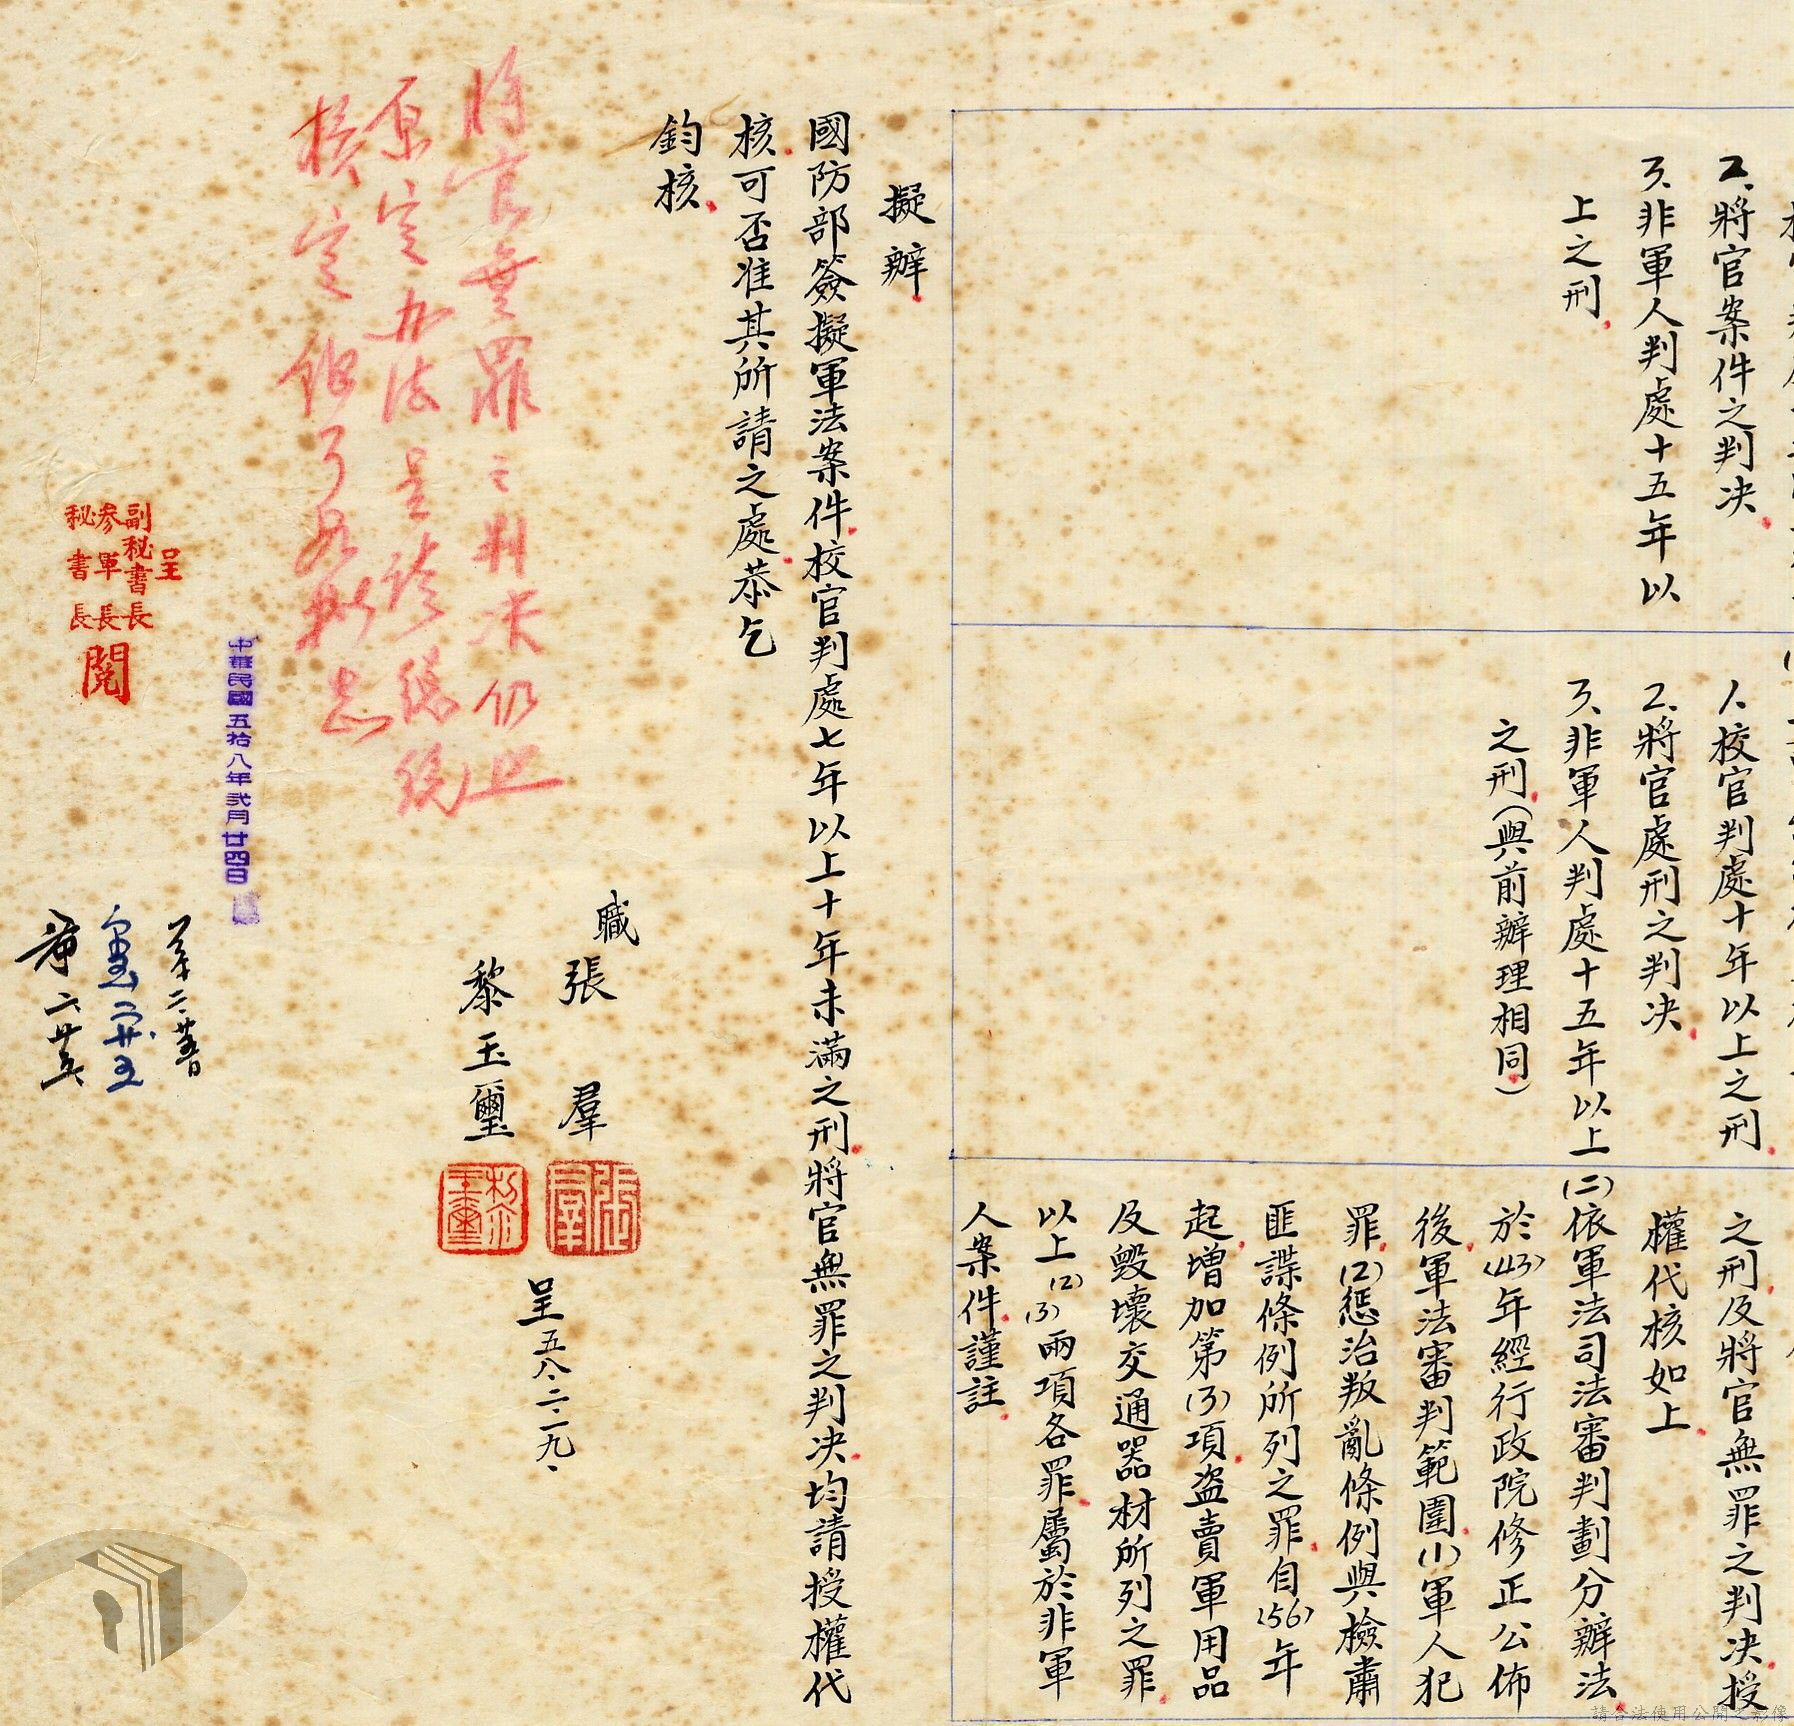 2、將官案件之判決
3、非軍人判處十五年以
上之刑
1、校官判處十年以上之刑
2、將官處刑之判決
3、非軍人判處十五年以上
之刑(與前辦理相同)
之刑及將官無罪之判決授
權代核如上
(二)依軍法司法審判劃分辦法
於(43)年經行政院修正公佈
後軍法審判範圍(1)軍人犯
罪(2)懲治叛亂條例與檢肅
匪諜條例所列之罪自(56)年
起增加第(3)項盜賣軍用品
及毀壞交通器材所列之罪
以上(2)(3)兩項各罪屬於非軍
人案件謹註
擬辦
國防部簽擬軍法案件校官判處七年以上十年未滿之刑將官無罪之判決均請授權代
核可否准其所請之處恭乞
鈞核
職張羣
黎玉璽
呈五八、二、一九、
將官無罪之判決仍照
原定办法呈總統
核定
中華民國五拾八年貳月廿四日
呈
副秘書長
參軍長
秘書長
閱
請合法使用公開之影像